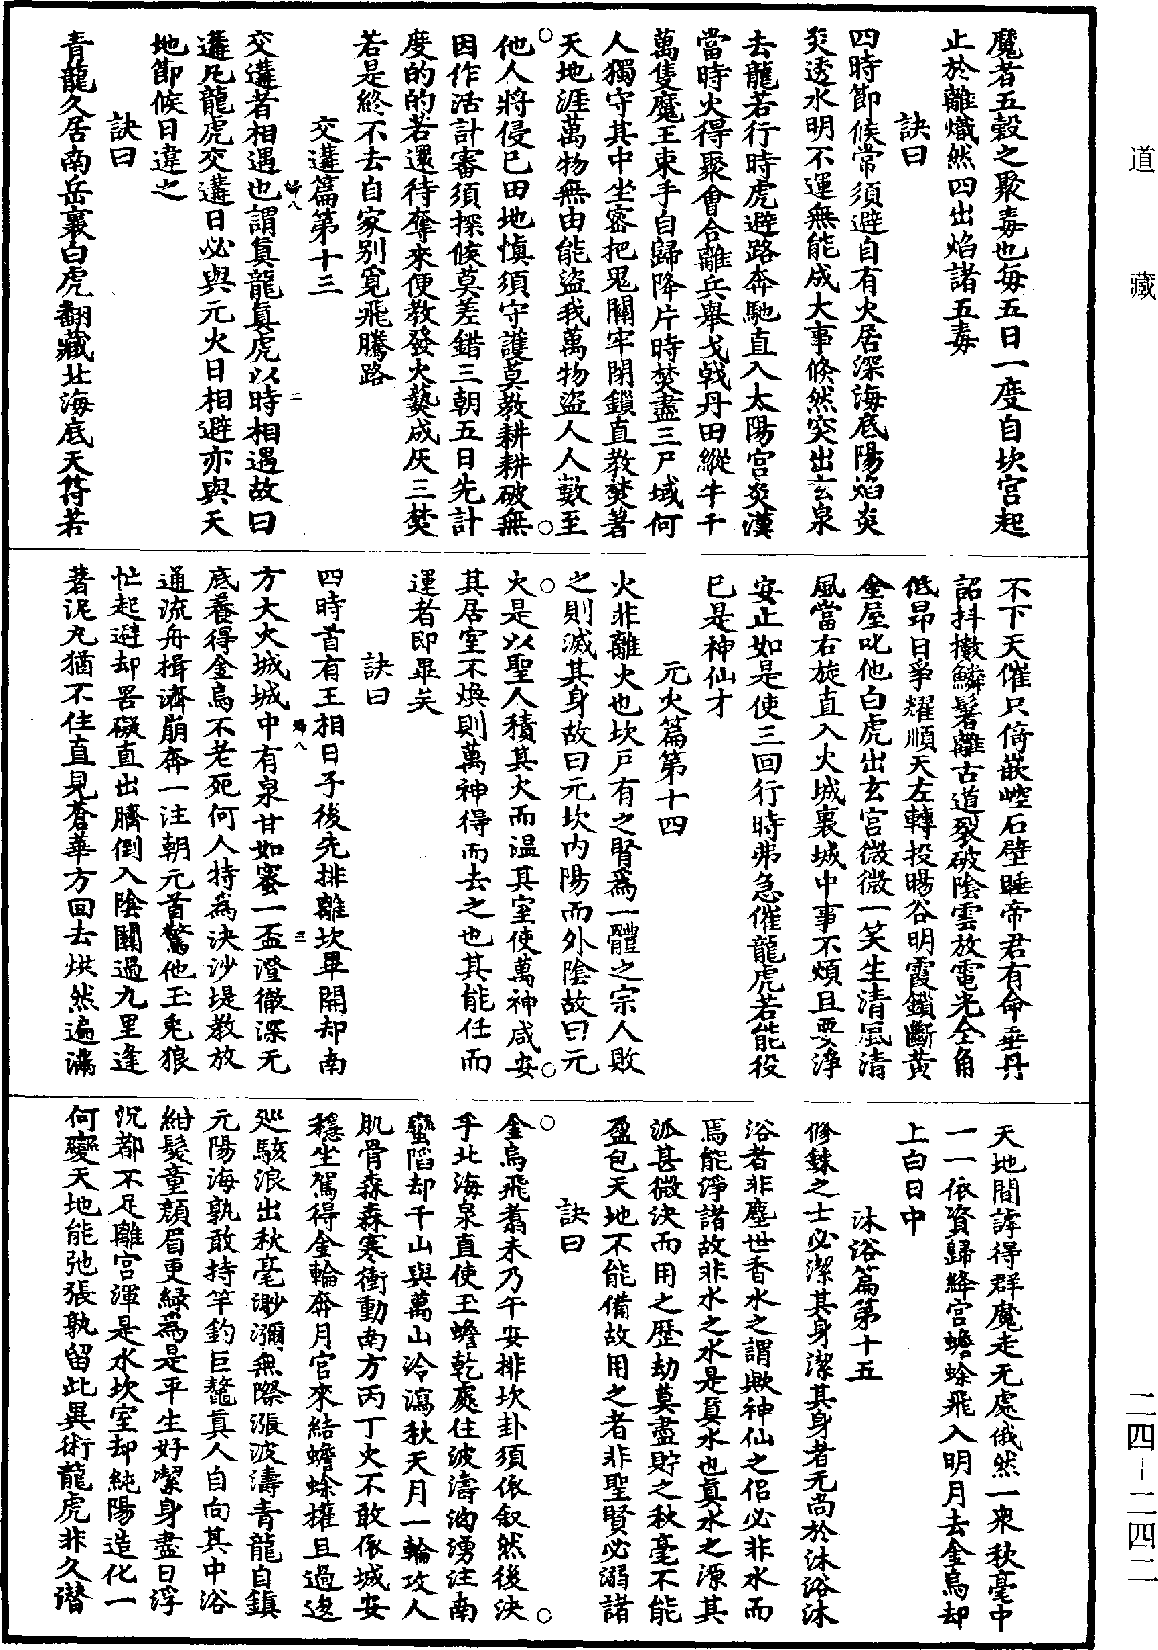 道藏
魔者五穀之聚毒也每五日一度自坎宫起
止於離熾然四出焰諸五毒
訣曰
四時節候常須避自有火居深海底陽焰炎
炎透水明不運無能成大事倏然突出玄泉
去龍若行時虎避路奔馳直入太陽宫炎漢
當時火得聚會合離兵舉戈戟丹田縱牛千
萬隻魔王束手自歸降片時焚盡三尸域何
人獨守其中坐密把鬼關牢閉鎖直教焚著
天地涯萬物無由能盜我萬物盜人人數至
他人將侵已田地慎須守護莫教耕耕破無
因作活計審須探候莫差錯三朝五日先計
度的的若還待奪來便教發火爇成灰三焚
若是終不去自家别覓飛騰路
交遘篇第十三
交遘者相遇也謂真龍真虎以時相遇故曰
遘凡龍虎交遘日必與元火日相避亦與天
地節候日違之
訣曰
青龍久居南岳裏白虎翻藏北海底天符若
不下天催只倚嵌崆石壁睡帝君有命垂丹
詔抖擻鱗髯離古道裂破陰雲放電光全角
低昂日爭耀順天左轉投暘谷明霞鎖斷黄
金屋叱他白虎出玄宫微微一笑生清風清
風當右旋直入火城裏城中事不煩且要淨
安止如是使三回行時弗急催龍虎若能役
已是神仙才
元火篇第十四
火非離火也坎戶有之腎爲一體之宗人敗
之則滅其身故曰元坎内陽而外陰故曰元
火是以聖人積其火而温其室使萬神咸安
其居室不煥則萬神得而去之也其能任而
運者即畢矣
訣曰
四時首有王相日子後先排離坎畢開却南
方大火城城中有泉甘如蜜一盃澄徹深无
底養得金烏不老死何人持為決沙堤教放
通流舟揖濟崩奔一注朝元首驚他玉兎狼
忙起避却罣礙直出臍倒入陰關過九里逢
著泥丸猶不住直見蒼華方回去烘然遍滿
天地間諕得群魔走无處俄然一朿秋毫中
一一依資歸絳宫蟾蜍飛入明月去金烏却
上白日中
沐浴篇第十五
修鍊之士必潔其身潔其身者无尚於沐浴沐
浴者非塵世香水之謂歟神仙之侣必非水而
焉能淨諸故非水之水是真水也真水之源其
派甚微決而用之歷劫莫盡貯之秋毫不能
盈包天地不能備故用之者非聖賢必溺諸
訣曰
金烏飛翥未乃午安排坎卦須依叙然後決
乎北海泉直使玉蟾乾處住波濤洶湧注南
蠻陷却千山與萬山冷瀉秋天月一輪攻人
肌骨森森寒衝動南方丙丁火不敢依城安
穩坐駕得金輪奔月宫來結蟾蜍擁且過逡
巡駭浪出秋毫渺瀰無際漲波濤青龍自鎮
元陽海孰敢持竿釣巨鼇真人自向其中浴
紺髮童顔眉更緑為是平生好潔身盡日浮
沉都不足離宫渾是水坎室却純陽造化一
何變天地能弛張孰留此異術龍虎非久潛
婦八
二
婦八
三
二四－二四二